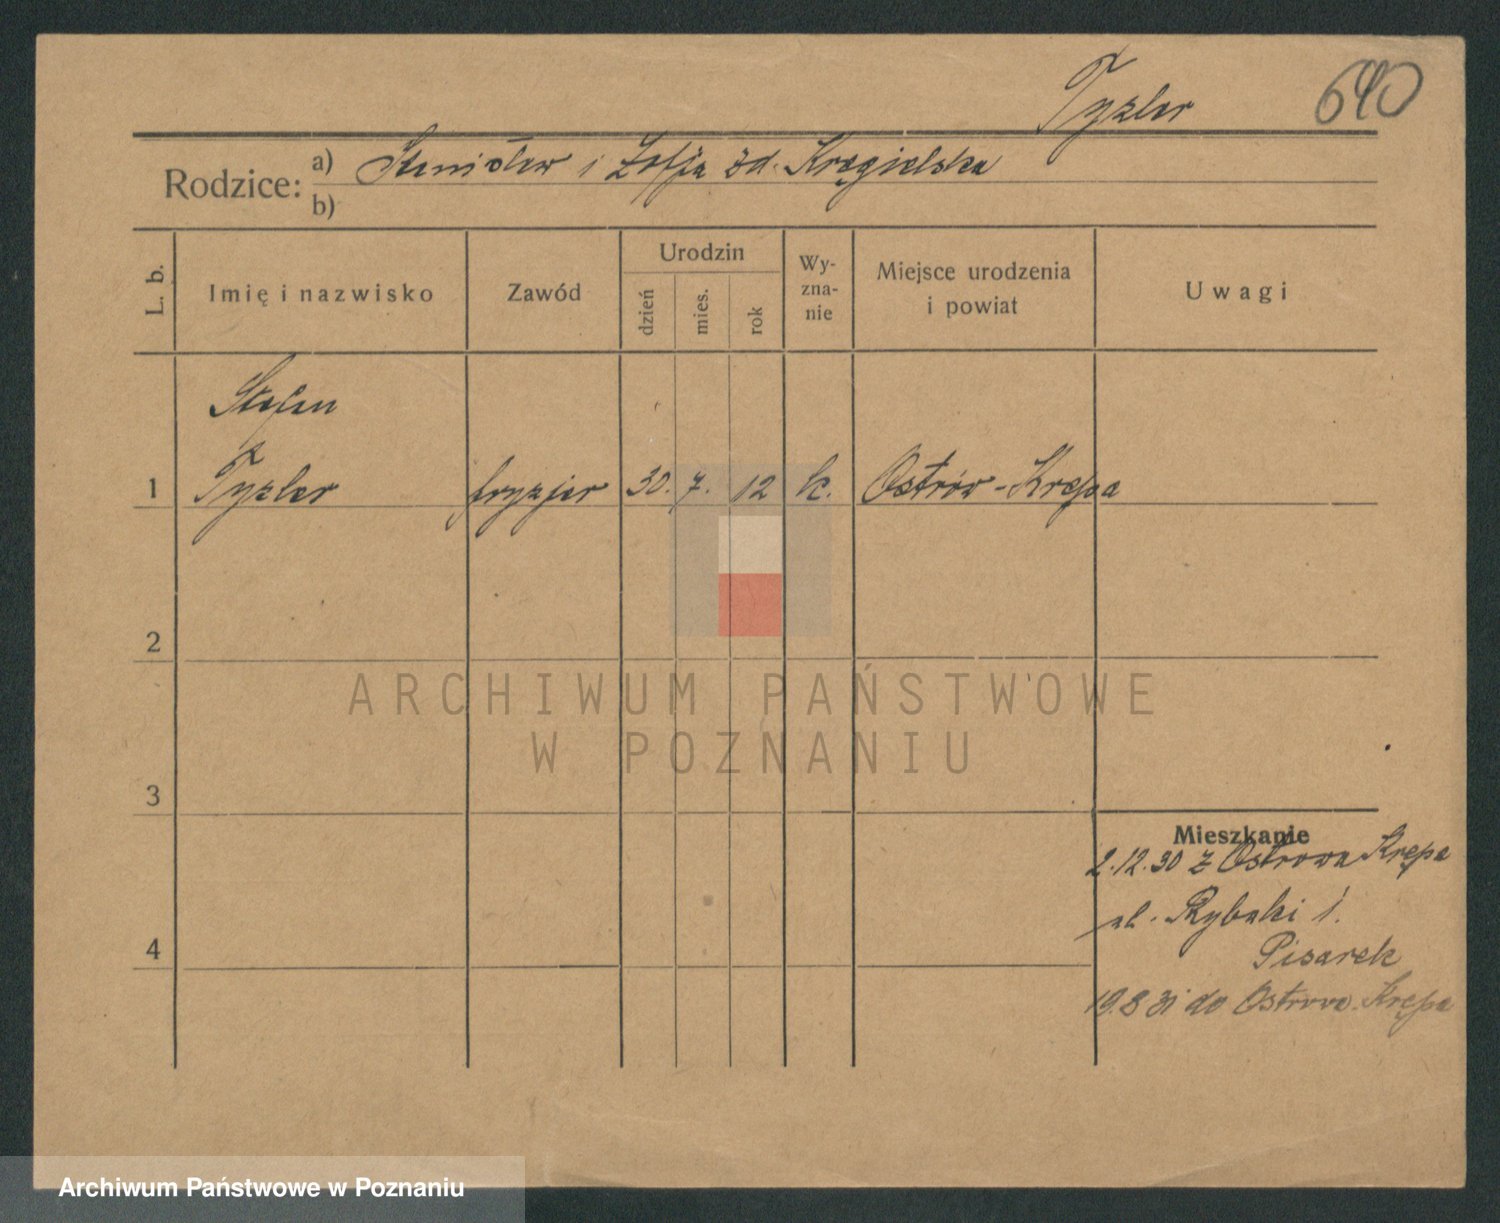 Tyzler
690
Rodzice: a) Stanisław i Zofja zd. Kręgielska
b)
L. b.
Imię i nazwisko
Zawód
Urodzin
dzień
mies.
rok
Wy-
zna-
nie
Miejsce urodzenia
i powiat
Uwagi
Stefan
1 Tyzler fryzjer 30. 7. 12 k. Ostrów - Krępa
2
ARCHIWUM PAŃSTWOWE
W POZNANIU
3
Mieszkanie
2.12.30 z Ostrowa Krępa
ul. Rybaki 1.
4
Pisarek
19.8 31 do Ostrowa. Krępa
Archiwum Państwowe w Poznaniu